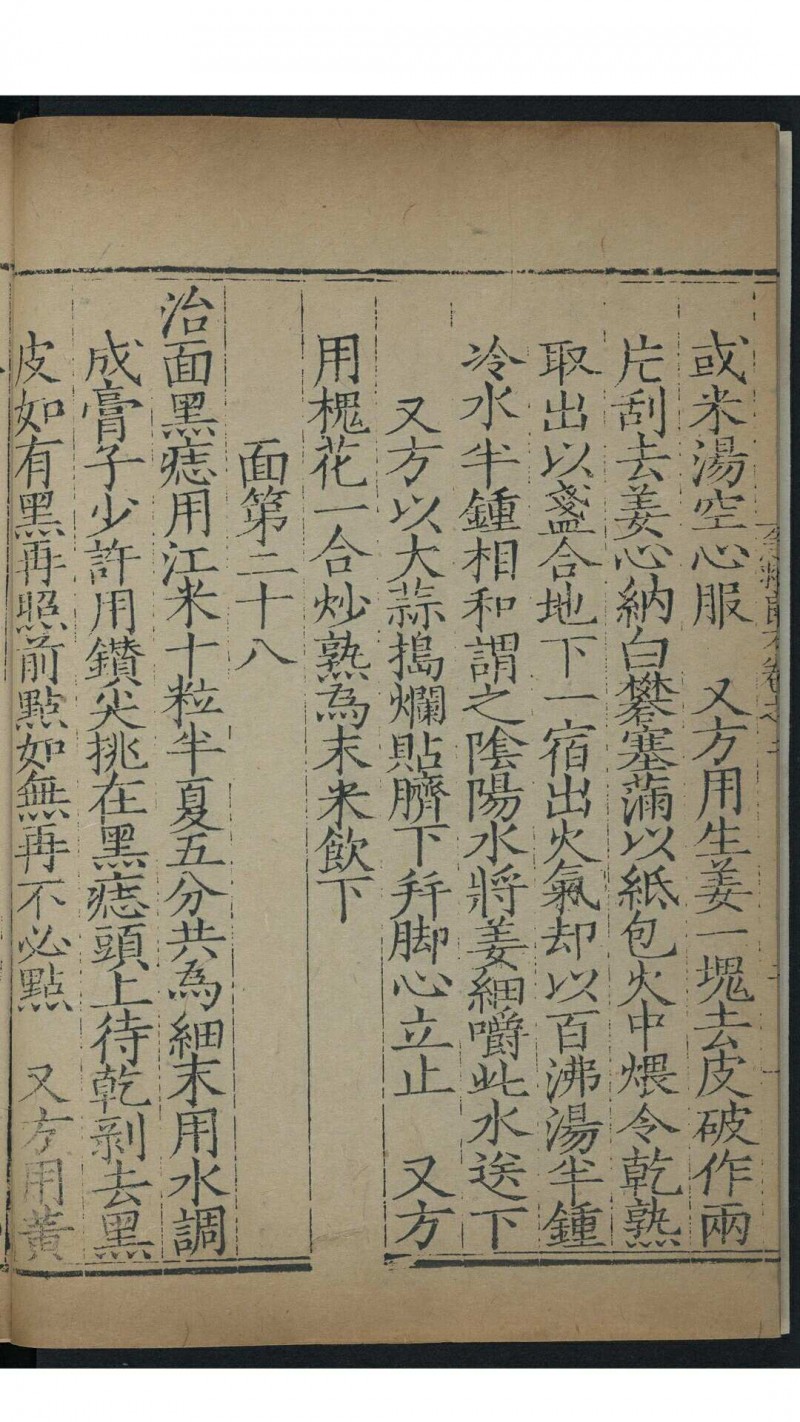 或米湯空心服　又方用生姜一塊去皮破作兩
片刮去姜心納白礬塞滿以紙包火中煨令乾熟
取出以盞合地下一宿出火氣却以百沸湯半鍾
冷水半鍾相和謂之陰陽水將姜細嚼此水送下
又方以大蒜搗爛貼臍下幷脚心立止　又方
用槐花一合炒熟為末米飲下
面第二十八
治面黑痣用江米十粒半夏五分共為細末用水調
成膏子少許用鑽尖挑在黑痣頭上待乾剥去黑
皮如有黑再照前點如無再不必點　又方用黃